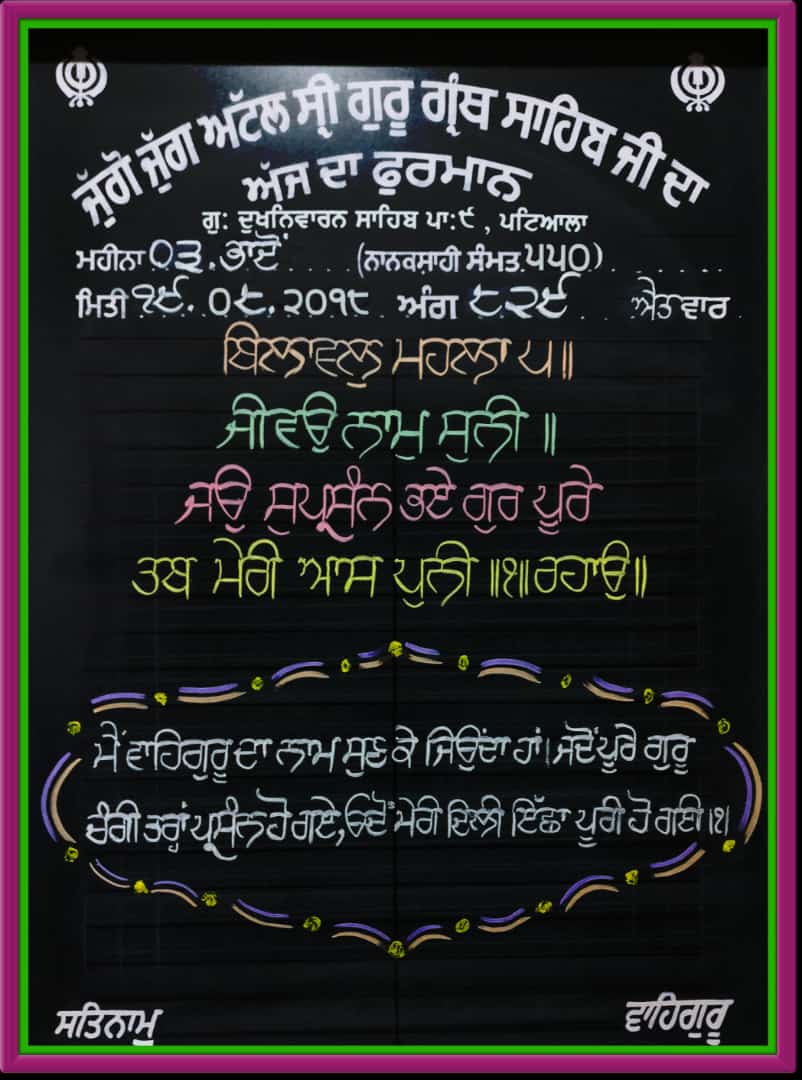 ਜੁੱਗੋ ਜੁੱਗ ਅੱਟਲ ਸ੍ਰੀ ਗੁਰੂ ਗ੍ਰੰਥ ਸਾਹਿਬ ਜੀ ਦਾ
ਅੱਜ ਦਾ ਫੁਰਮਾਨ
ਗੁ: ਦੁਖਨਿਵਾਰਨ ਸਾਹਿਬ ਪਾ:੯ , ਪਟਿਆਲਾ
ਮਹੀਨਾ ੦੩. ਭਾਦੋਂ (ਨਾਨਕਸ਼ਾਹੀ ਸੰਮਤ ੫੫੦)
ਮਿਤੀ ੧੯.੦੮.੨੦੧੮ ਅੰਗ ੮੨੯ ਐਤਵਾਰ
ਬਿਲਾਵਲੁ ਮਹਲਾ ੫॥
ਜੀਵਉ ਨਾਮੁ ਸੁਨੀ ॥
ਜਉ ਸੁਪ੍ਰਸੰਨ ਭਏ ਗੁਰ ਪੂਰੇ
ਤਬ ਮੇਰੀ ਆਸ ਪੁਨੀ ॥੧॥ ਰਹਾਉ॥
ਮੈਂ ਵਾਹਿਗੁਰੂ ਦਾ ਨਾਮ ਸੁਣ ਕੇ ਜਿਉਂਦਾ ਹਾਂ। ਜਦੋਂ ਪੂਰੇ ਗੁਰੂ
ਚੰਗੀ ਤਰ੍ਹਾਂ ਪ੍ਰਸੰਨ ਹੋ ਗਏ, ਓਦੋਂ ਮੇਰੀ ਦਿਲੀ ਇੱਛਾ ਪੂਰੀ ਹੋ ਗਈ।੧।
ਸਤਿਨਾਮੁ
ਵਾਹਿਗੁਰੂ